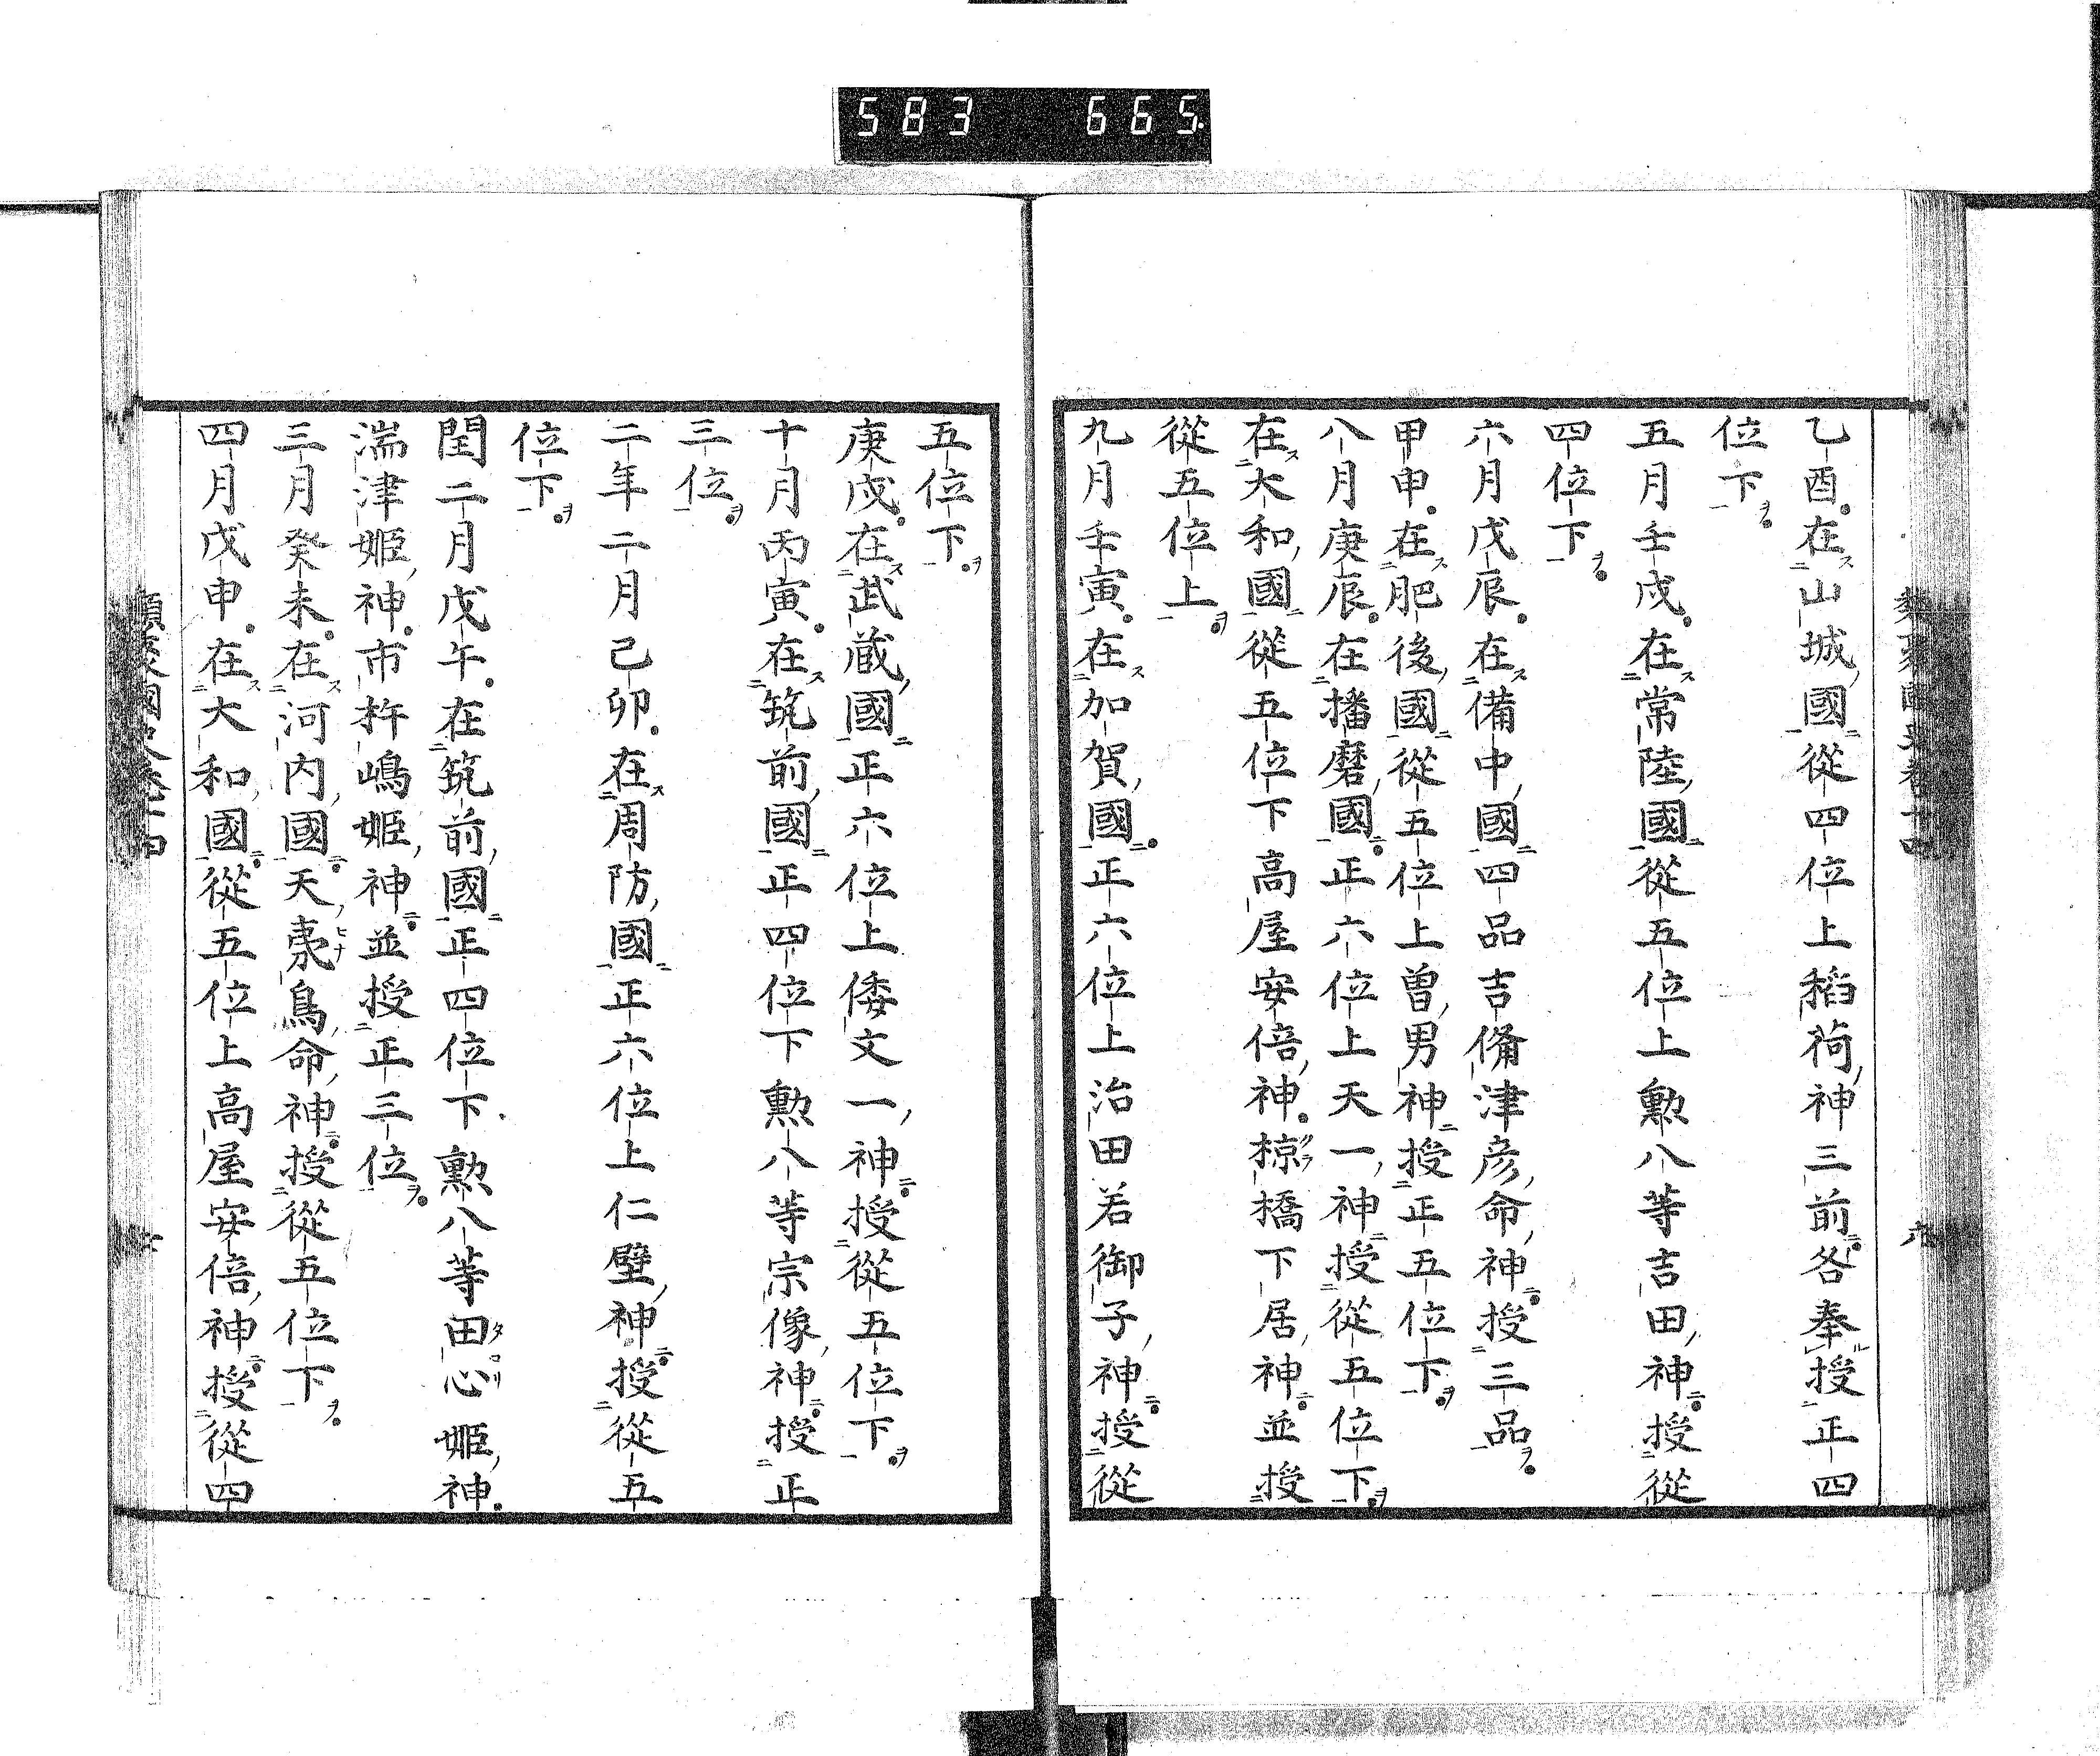 583 665
乙酉在山城國從四位上稻荷神三前各奉授正四
位下
五月壬戌在常陸國從五位上勲八等吉田神授從
四位下
六月戊辰在備中國四品吉備津彦命神授三品
甲申在肥後國從五位上曽男神授正五位下
八月庚辰在播磨國正六位上天一神授從五位下
在大和國從五位下高屋安倍神椋橋下居神並授
從五位上
九月壬寅在加賀國正六位上治田若御子神授從
五位下
庚戌在武蔵國正六位上倭文一神授從五位下
十月丙寅在筑前國正四位下勲八等宗像神授正
三位
二年二月己卯在周防國正六位上仁壁神授從五
位下
閏二月戊午在筑前國正四位下勲八等田心姫神
湍津姫神市杵嶋姫神並授正三位
三月癸未在河内國天夷鳥命神授從五位下
四月戊申在大和國從五位上高屋安倍神授從四